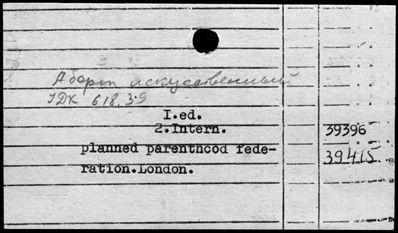 Аборт искусственный
УДК 618.39
I.ed.
2.Intern. 39396
planned parenthcod fede- 39415
ration.London.